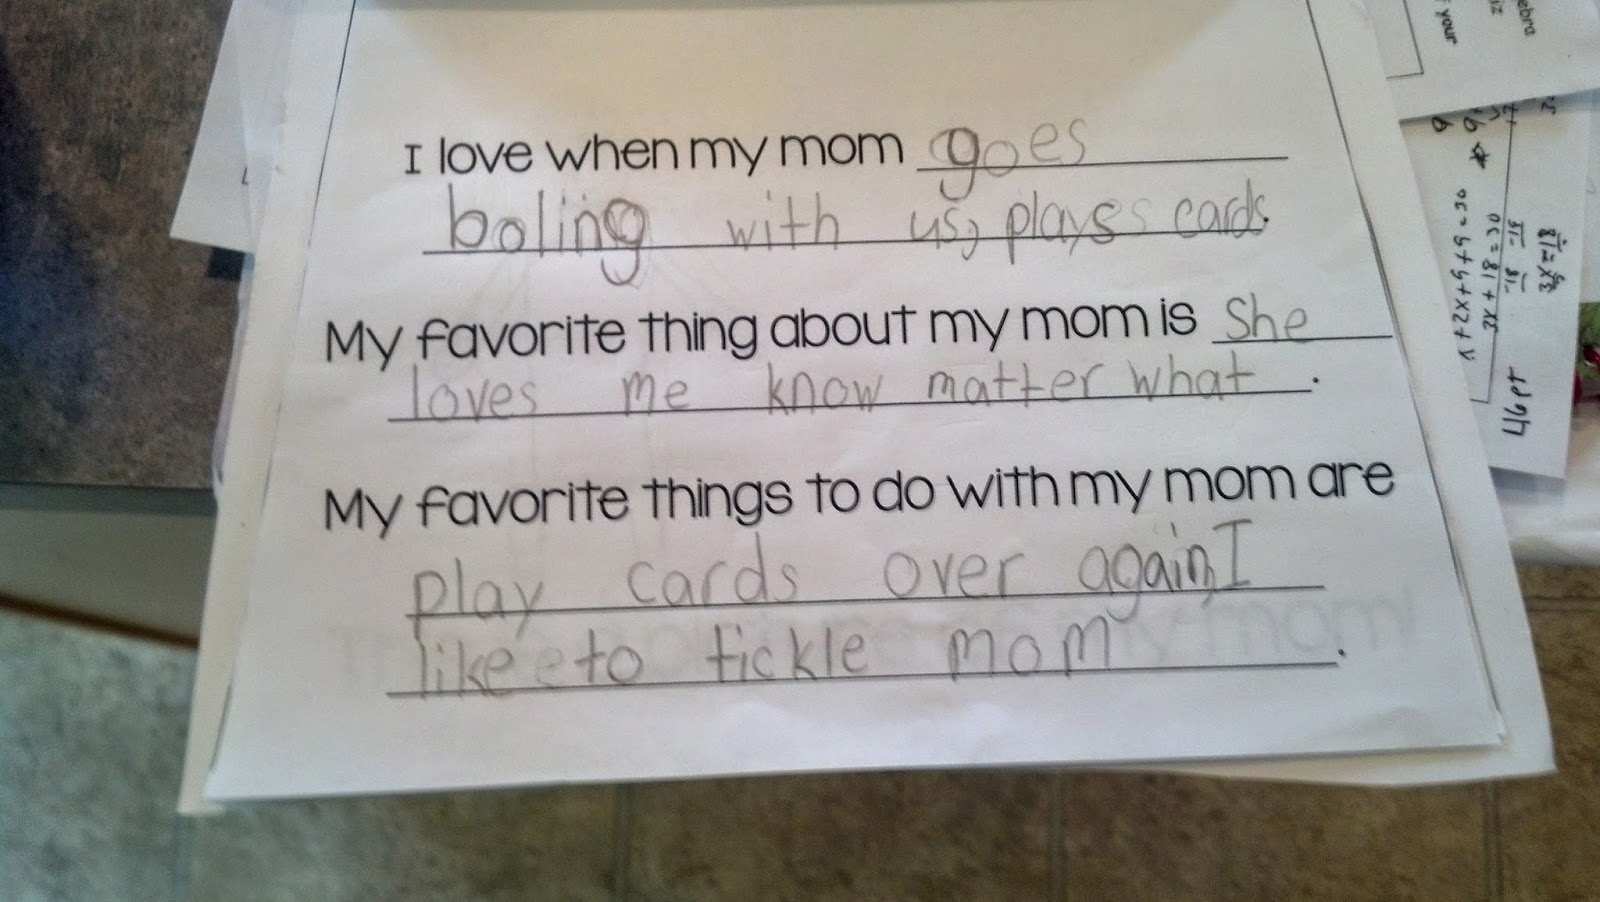 I love when my mom goes
boling with us, playes cards
My favorite thing about my mom is She
loves me know matter what.
My favorite things to do with my mom are
play cards over again, I
like to tickle mom.
ebra
iz
your